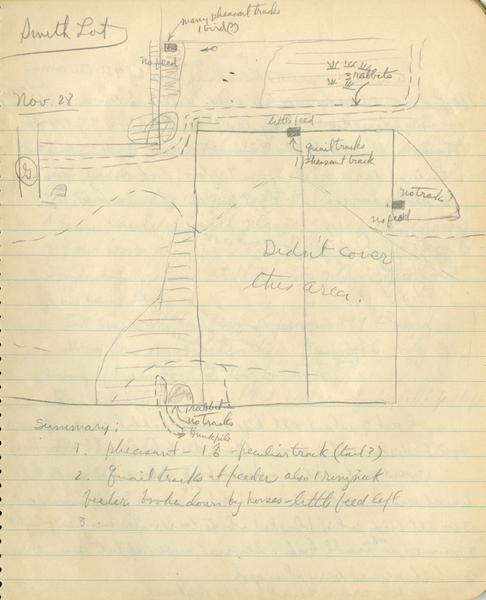 Smith Lot
many pheasant tracks
1 bird(?)
no feed
3 rabbits
Nov. 28
little feed
quail tracks
1 pheasant track
no tracks
no feed
Didn't cover
this area.
rabbits
no tracks
Summary:
1. pheasant - 1♂ - peculiar track (tail?)
2. Quail tracks at feeder also 1 ringneck
feeder broken down by horses - little feed left
3.